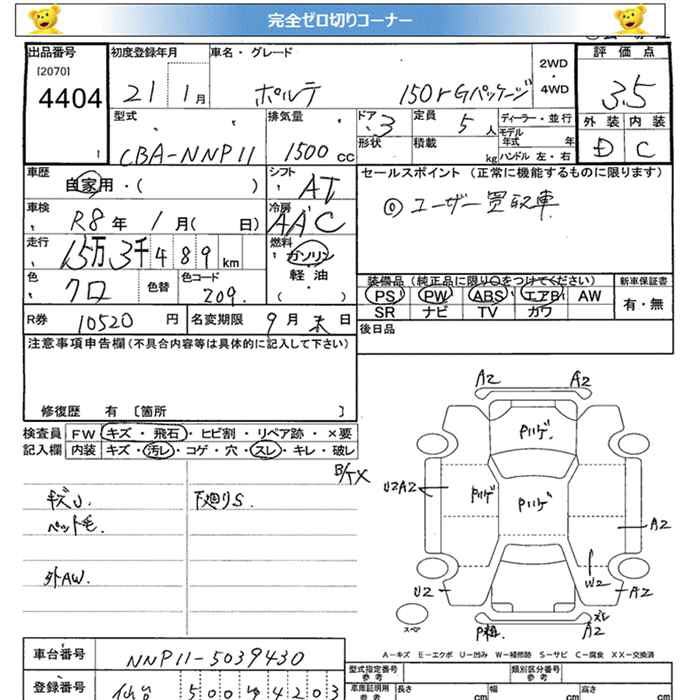 完全ゼロ切りコーナー
出品番号 初度登録年月 車名・グレード 評価点
[2070]
4404 21 1月 ポルテ 150r Gパッケージ 2WD・4WD 3.5
型式 排気量 ドア 定員 ディーラー・並行 外装 内装
CBA-NNP11 1500 cc 3 5人 モデル年式 年 D C
形状 積載 kg ハンドル 左・右
車歴 シフト セールスポイント(正常に機能するものに限ります)
自家用・( ) AT ◎ユーザー買取車
車検 冷房
R8年 1月( 日) AAC
走行 燃料
15万3千489km ガソリン
色 色替 色コード 軽油
クロ 209. ( ・ )
装備品(純正品に限り○をつけてください) 新車保証書
PS PW ABS エアB AW 有・無
SR ナビ TV カワ
R券 10520円 名変期限 9月末日 後日品
注意事項申告欄(不具合内容等は具体的に記入して下さい)
修復歴 有 〔箇所 〕
検査員 FW キズ・飛石・ヒビ割・リペア跡・×要
記入欄 内装 キズ・汚レ・コゲ・穴・スレ・キレ・破レ
キズU. 下廻りS.
ペット毛
外AW.
A2 A2
Pハゲ
U2A2 Pハゲ Pハゲ
A2
W2
U2 A2
スペア A2
A-キズ E-エクボ U-凹み W-補修跡 S-サビ C-腐食 XX-交換済
車台番号 NNP11-5039430
型式指定番号 類別区分番号
参考 参考
登録番号 仙台 500 4203
車庫証明用 長さ 幅 高さ
参考 cm cm cm